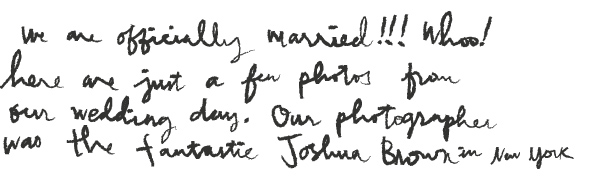 we are officially married!!! Whoo!
here are just a few photos from
our wedding day. Our photographer
was the fantastic Joshua Brown in New York